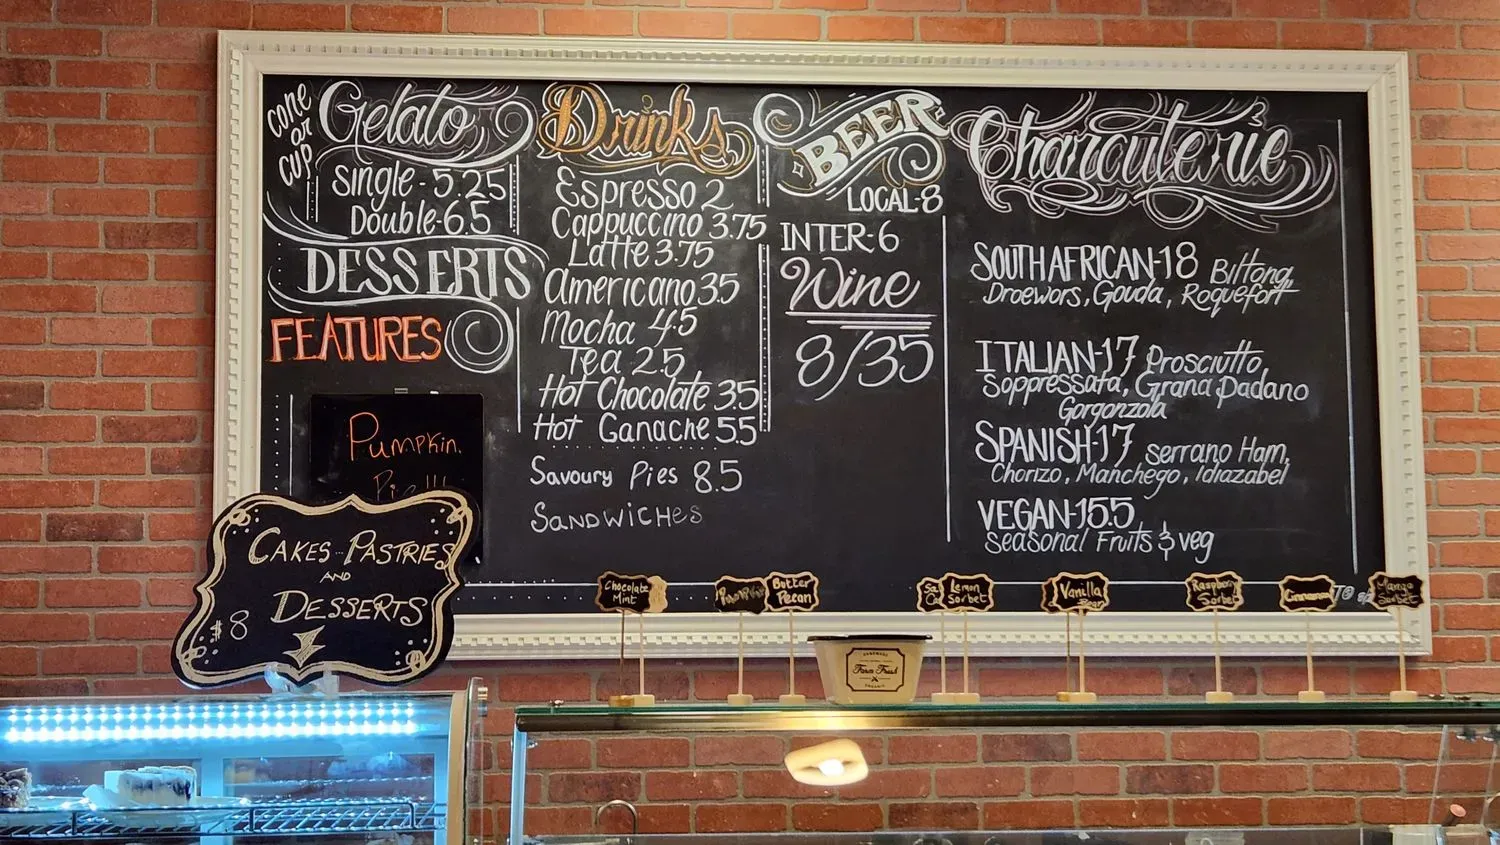 cone
or
cup
Gelato
Single - 5.25
Double - 6.5
DESSERTS
FEATURES
Pumpkin
Pie!!!
CAKES PASTRIES
AND
DESSERTS
$8
Drinks
Espresso 2
Cappuccino 3.75
Latte 3.75
Americano 3.5
Mocha 4.5
Tea 2.5
Hot Chocolate 3.5
Hot Ganache 5.5
Savoury Pies 8.5
SANDWICHES
BEER
LOCAL-8
INTER-6
Wine
8/35
Charcuterie
SOUTH AFRICAN-18 Biltong,
Droewors, Gouda, Roquefort
ITALIAN-17 Prosciutto
Soppressata, Grana Padano
Gorgonzola
SPANISH-17 Serrano Ham,
Chorizo, Manchego, Idiazabel
VEGAN-15.5
Seasonal Fruits & veg
Chocolate
Mint
Pumpkin
Butter
Pecan
Lemon
Sorbet
Vanilla
Bean
Raspberry
Sorbet
Cinnamon
Mango
Sorbet
Farm Fresh